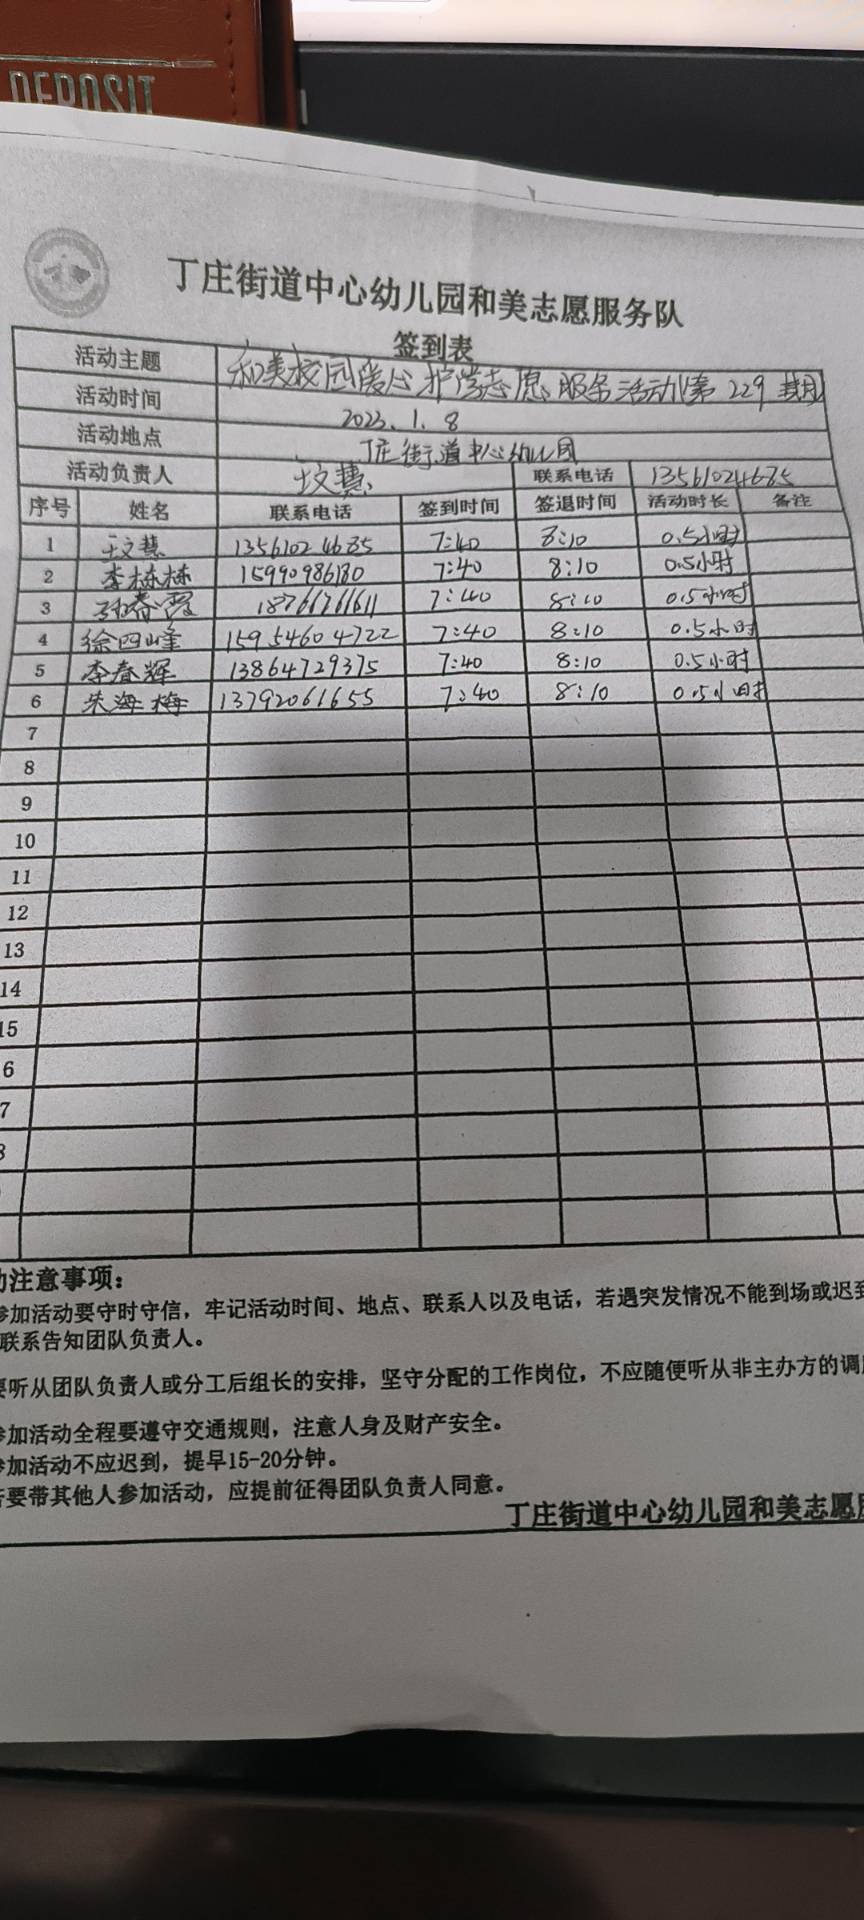 DEPOSIT
丁庄街道中心幼儿园和美志愿服务队
签到表
活动主题 和美校园暖心护学志愿服务活动(第229期)
活动时间 2023.1.8
活动地点 丁庄街道中心幼儿园
活动负责人 王文慧 联系电话 13561024685
序号 姓名 联系电话 签到时间 签退时间 活动时长 备注
1 王文慧 13561024685 7:40 8:10 0.5小时
2 李栋栋 15990986180 7:40 8:10 0.5小时
3 孙春霞 18766761611 7:40 8:10 0.5小时
4 徐四峰 15954604722 7:40 8:10 0.5小时
5 李春辉 13864729375 7:40 8:10 0.5小时
6 朱海梅 13792061655 7:40 8:10 0.5小时
7
8
9
10
11
12
13
14
15
6
7
动注意事项：
参加活动要守时守信，牢记活动时间、地点、联系人以及电话，若遇突发情况不能到场或迟到
联系告知团队负责人。
要听从团队负责人或分工后组长的安排，坚守分配的工作岗位，不应随便听从非主办方的调
参加活动全程要遵守交通规则，注意人身及财产安全。
参加活动不应迟到，提早15-20分钟。
若要带其他人参加活动，应提前征得团队负责人同意。
丁庄街道中心幼儿园和美志愿服